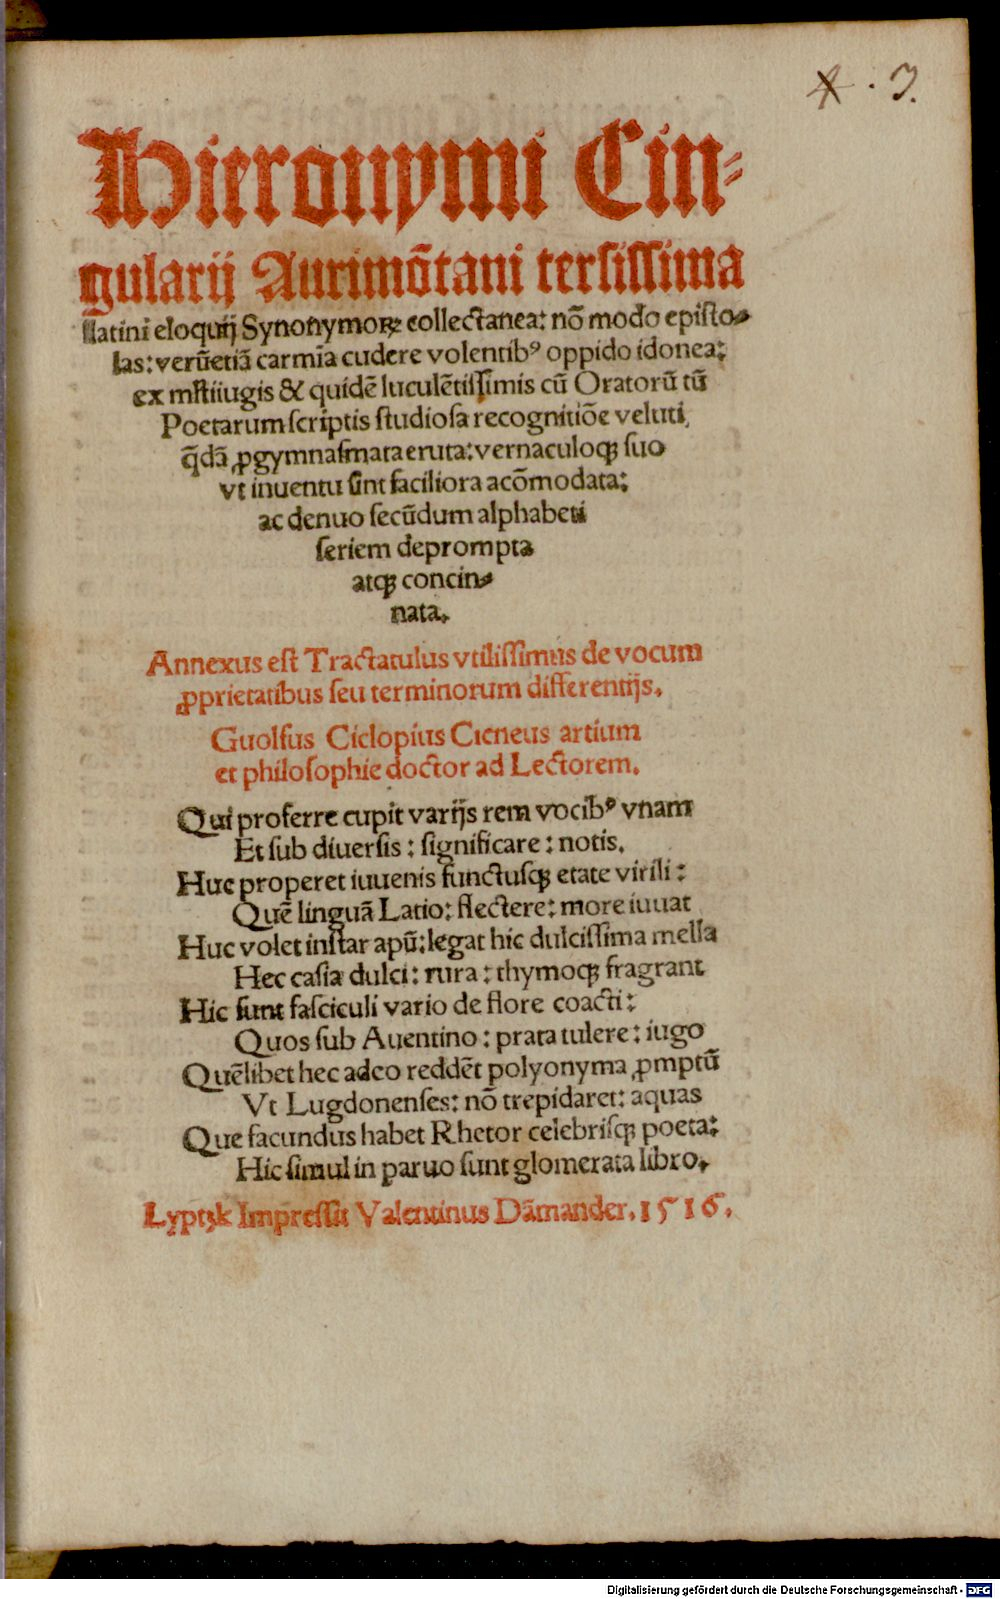 4 . 3.
Hieronymi Cin⸗
gularij Aurimōtani tersissima
latini eloquij Synonymoꝝ collectanea: nō modo episto⸗
las: verūetiā carmīa cudere volentibꝰ oppido idonea:
ex mltiiugis & quidē luculētissimis cū Oratorū tū
Poetarum scriptis studiosa recognitiōe veluti
q̄dā ꝓgymnasmata eruta: vernaculoqꝫ suo
vt inuentu sint faciliora acōmodata:
ac denuo secūdum alphabeti
seriem deprompta
atqꝫ concin⸗
nata.
Annexus est Tractatulus vtilissimus de vocum
ꝓprietatibus seu terminorum differentijs.
Guolfus Ciclopius Cicneus artium
et philosophie doctor ad Lectorem.
Qui proferre cupit varijs rem vocibꝰ vnam
Et sub diuersis: significare: notis.
Huc properet iuuenis functusqꝫ etate virili:
Quē linguā Latio: flectere: more iuuat
Huc volet instar apū: legat hic dulcissima mella
Hec casia dulci: rura: thymoqꝫ fragrant
Hic sunt fasciculi vario de flore coacti:
Quos sub Auentino: prata tulere: iugo
Quēlibet hec adeo reddēt polyonyma ꝓmptū
Vt Lugdonenses: nō trepidaret: aquas
Que facundus habet Rhetor celebrisqꝫ poeta:
Hic simul in paruo sunt glomerata libro.
Lyptzk Impressit Valentinus Dāmander. 1516.
Digitalisierung gefördert durch die Deutsche Forschungsgemeinschaft - DFG